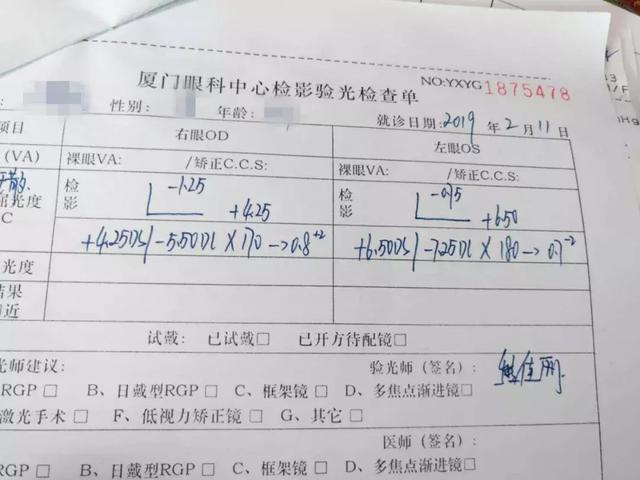 厦门眼科中心检影验光检查单
NO:YXYG1875478
性别: 年龄: 就诊日期:2019年2月11日
项目 右眼OD 左眼OS
(VA) 裸眼VA: /矫正C.C.S: 裸眼VA: /矫正C.C.S:
屈光度 检影 -1.25 +4.25 检影 -0.75 +6.50
C
+4.25DS/-5.50DC×170→0.8⁺² +6.50DS/-7.25DC×180→0.7⁻²
光度
结果
附近
试戴: 已试戴□ 已开方待配镜□
光师建议: 验光师(签名):
RGP□ B、日戴型RGP□ C、框架镜□ D、多焦点渐进镜□
激光手术□ F、低视力矫正镜□ G、其它□
医师(签名):
RGP□ B、日戴型RGP□ C、框架镜□ D、多焦点渐进镜□